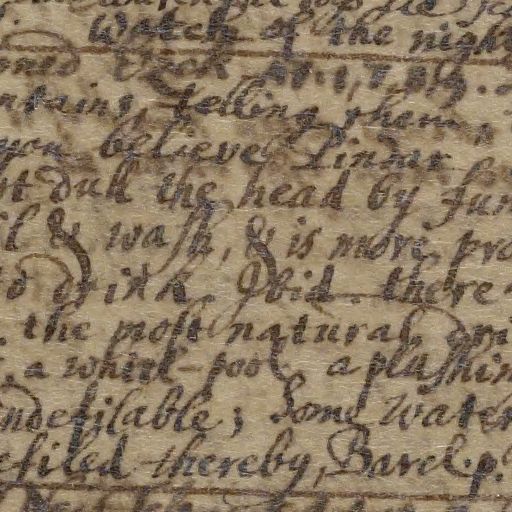 Watch of the night
ntains, telling them,
you believe Pindar
dull the head by fum
il & wash, & is more pro
drink. Ibid. there
. the most natural dri
, a whirl-pool a plashin
ndefilable; Some Water
efiled thereby, Barcl. p.